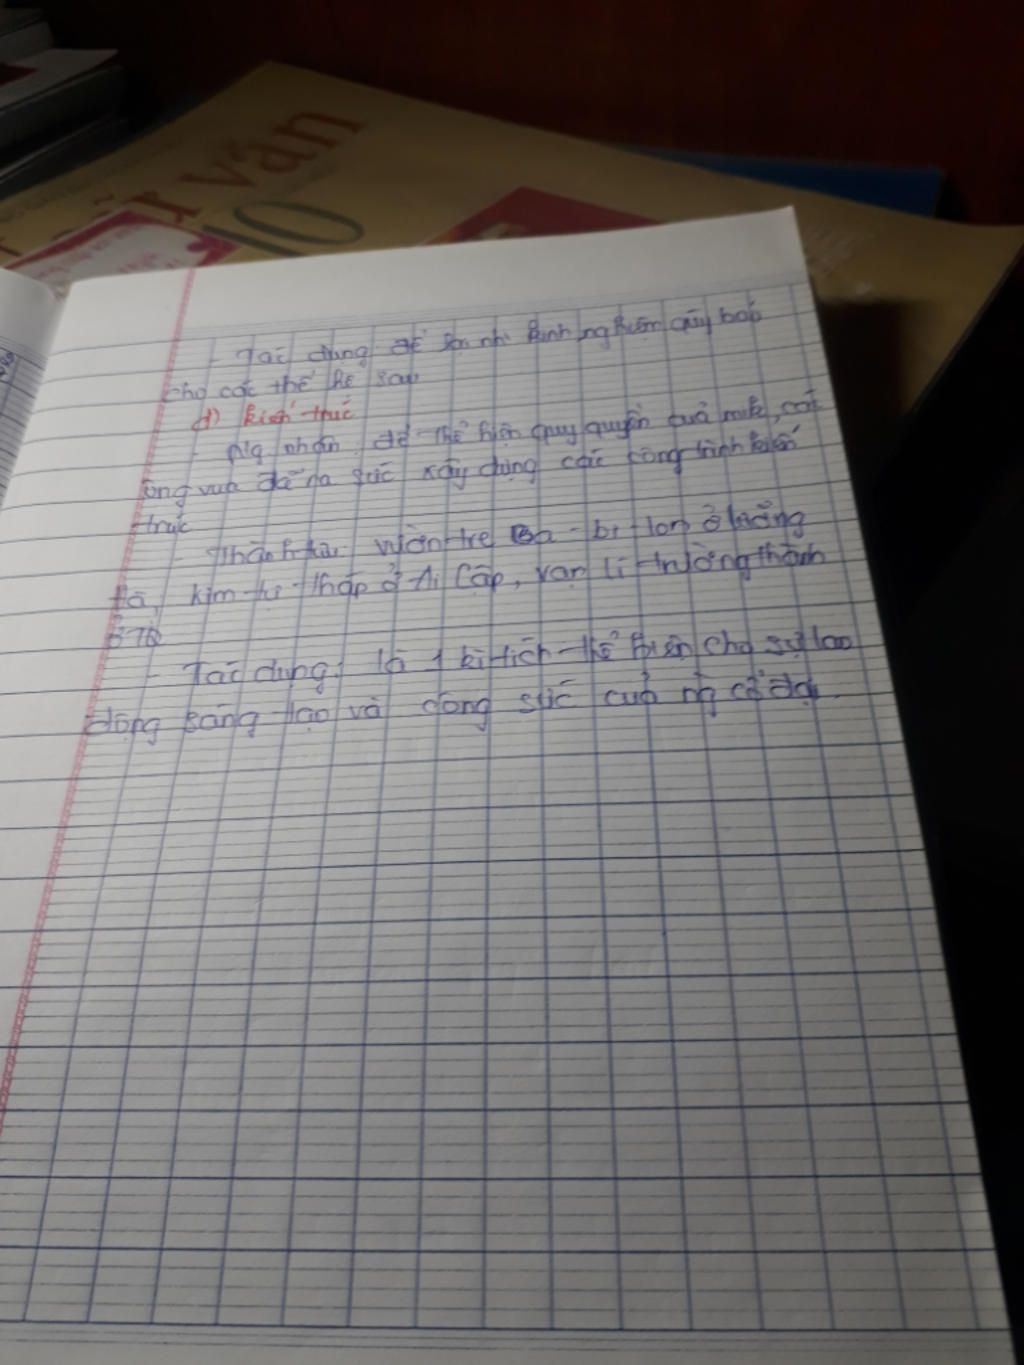 ữ văn
10
- Tác dụng để ghi kinh nghiệm quý báu
cho các thế hệ sau
d) kiến trúc
- ng nhân. để thể hiện quy quyền của mik, các
ông vua đã ra sức xây dựng các công trình kiến
trúc
- Thành tựu: vườn tre Ba-bi-lon ở lưỡng
hà, kim tự tháp ở Ai Cập, vạn lí trường thành
ở TQ
- Tác dụng: là 1 kì tích thể hiện cho sự lao
động sáng tạo và công sức của ng cổ đại.